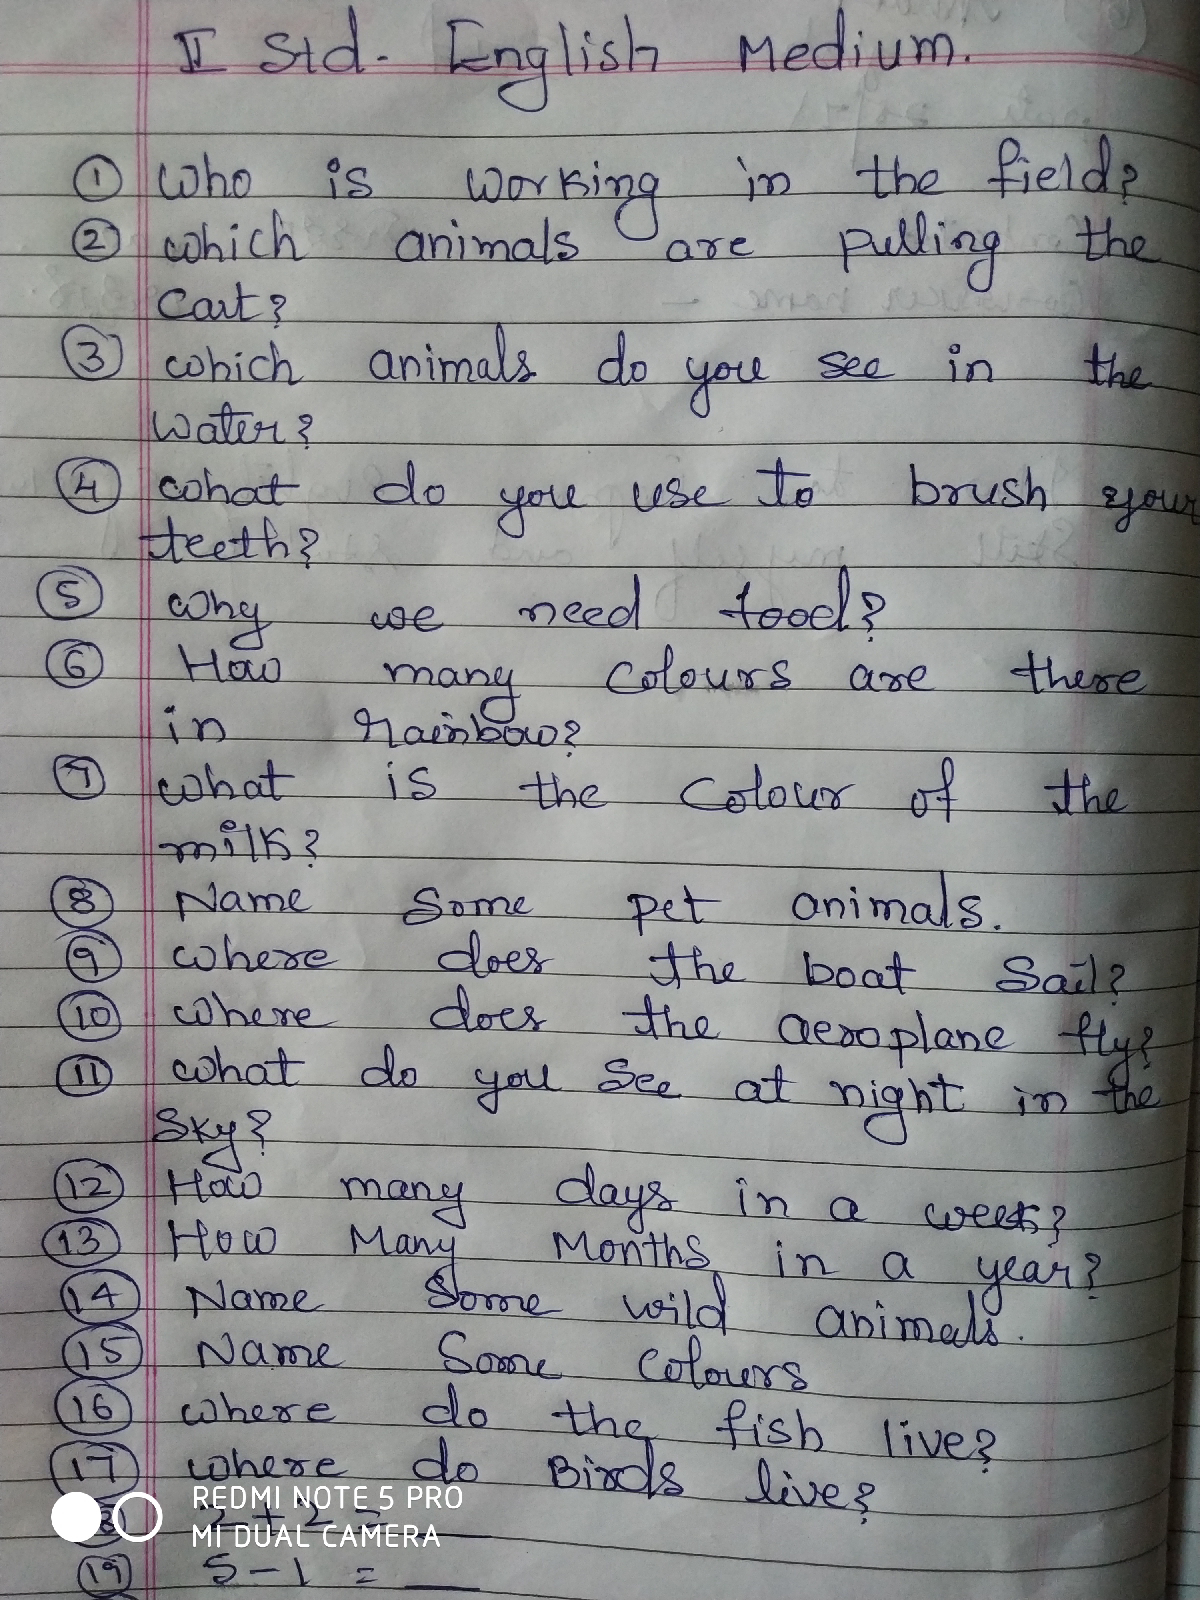 II Std. English Medium.
1 Who is working in the field?
2 Which animals are pulling the
Cart?
3 Which animals do you see in the
Water?
4 What do you use to brush your
teeth?
5 Why we need food?
6 How many colours are there
in rainbow?
7 What is the colour of the
milk?
8 Name Some pet animals.
9 Where does the boat Sail?
10 Where does the aeroplane fly?
11 What do you See at night in the
Sky?
12 How many days in a week?
13 How Many Months in a year?
14 Name Some wild animals.
15 Name Some Colours
16 Where do the fish live?
17 Where do Birds live?
REDMI NOTE 5 PRO
2 + 2 = __
MI DUAL CAMERA
19 5 - 1 = __